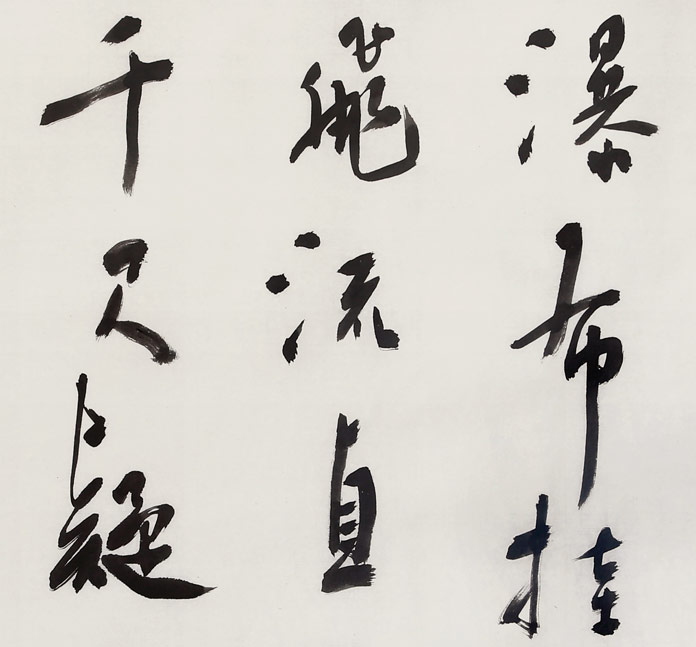 瀑布挂
飛流直
千尺疑